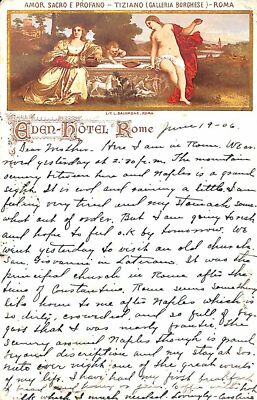 AMOR SACRO E PROFANO - TIZIANO (GALLERIA BORGHESE) - ROMA
LIT. L. SALOMONE, ROMA
EDEN-HÔTEL, ROME June, 19-06.
Dear Mother. Here I am in Rome. We ar-
rived yesterday at 2:30 p.m. The mountain
scenery between here and Naples is a grand
sight. It is cool and raining a little. I am
feeling very tired and my stomach some-
what out of order. But I am going to rest
and hope to feel o.k. by tomorrow. We
went yesterday to visit an old church
San. Giovanni in Laterano. It was the
principal church in Rome after the
time of Constantine. Rome seems something
like home to me after Naples which is
so dirty, crowded, and so full of beg-
gars that I was nearly frantic. The
scenery around Naples though is grand
beyond discription and my stay at Sor-
rento over night one of the great events
of my life. I have had my first
which I much needed. Lovingly - Caroline